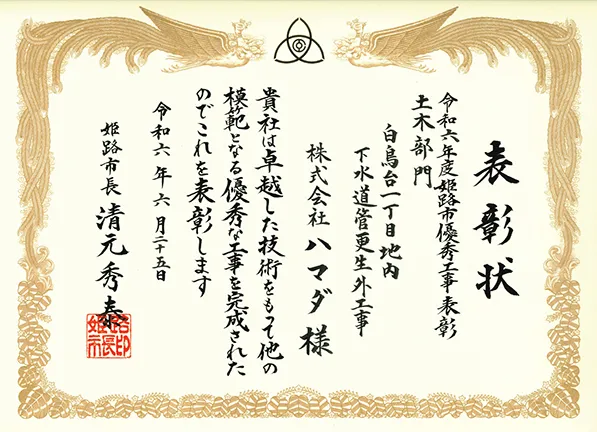 表彰状
令和六年度姫路市優秀工事表彰
土木部門
白鳥台一丁目地内
下水道管更生外工事
株式会社ハマダ様
貴社は卓越した技術をもって他の
模範となる優秀な工事を完成された
のでこれを表彰します
令和六年六月二十五日
姫路市長 清元秀泰